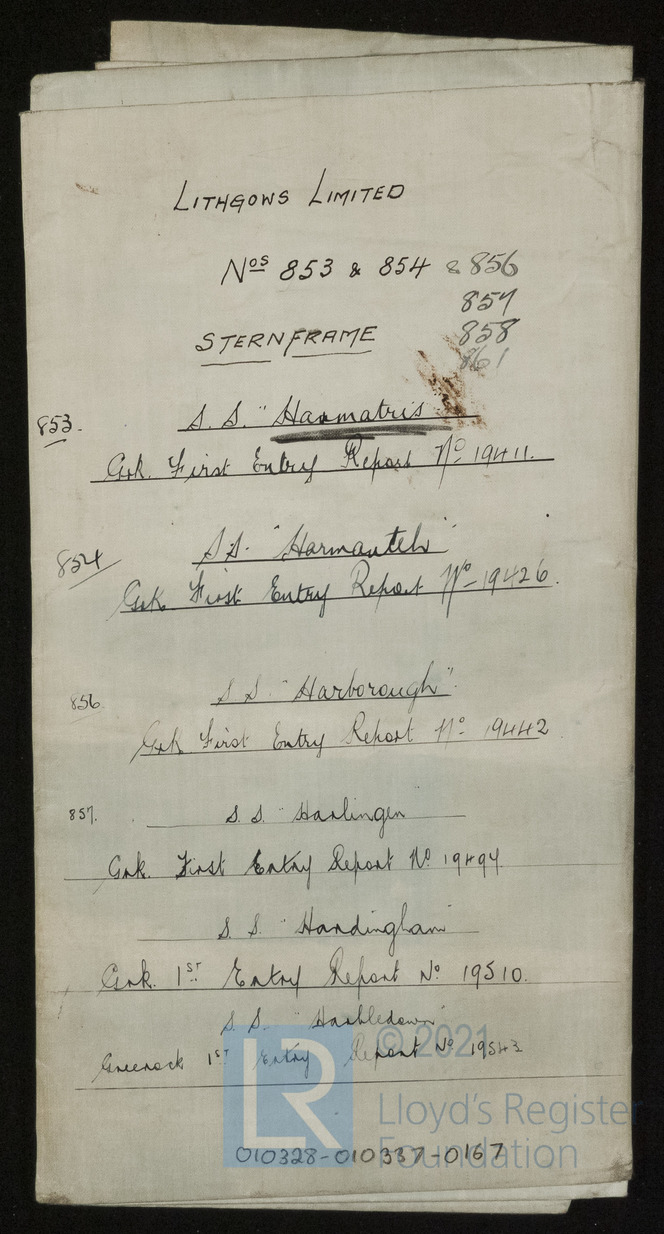 LITHGOWS LIMITED
Nos 853 & 854 & 856
857
858
861
STERNFRAME
853.
S.S. "Harmatris"
Grk. First Entry Report No 19411.
854
S.S. "Harmanteh"
Grk. First Entry Report No 19426.
856
S.S. "Harborough".
Grk First Entry Report No 19442.
857.
S.S. "Harlingen"
Grk. First Entry Report No 19497
S.S. "Hardingham"
Grk. 1ST Entry Report No 19510.
S.S. "Harbledown"
Greenock 1ST Entry Report No 19543
© 2021
LR
Lloyd's Register
Foundation
010328-010337-0167